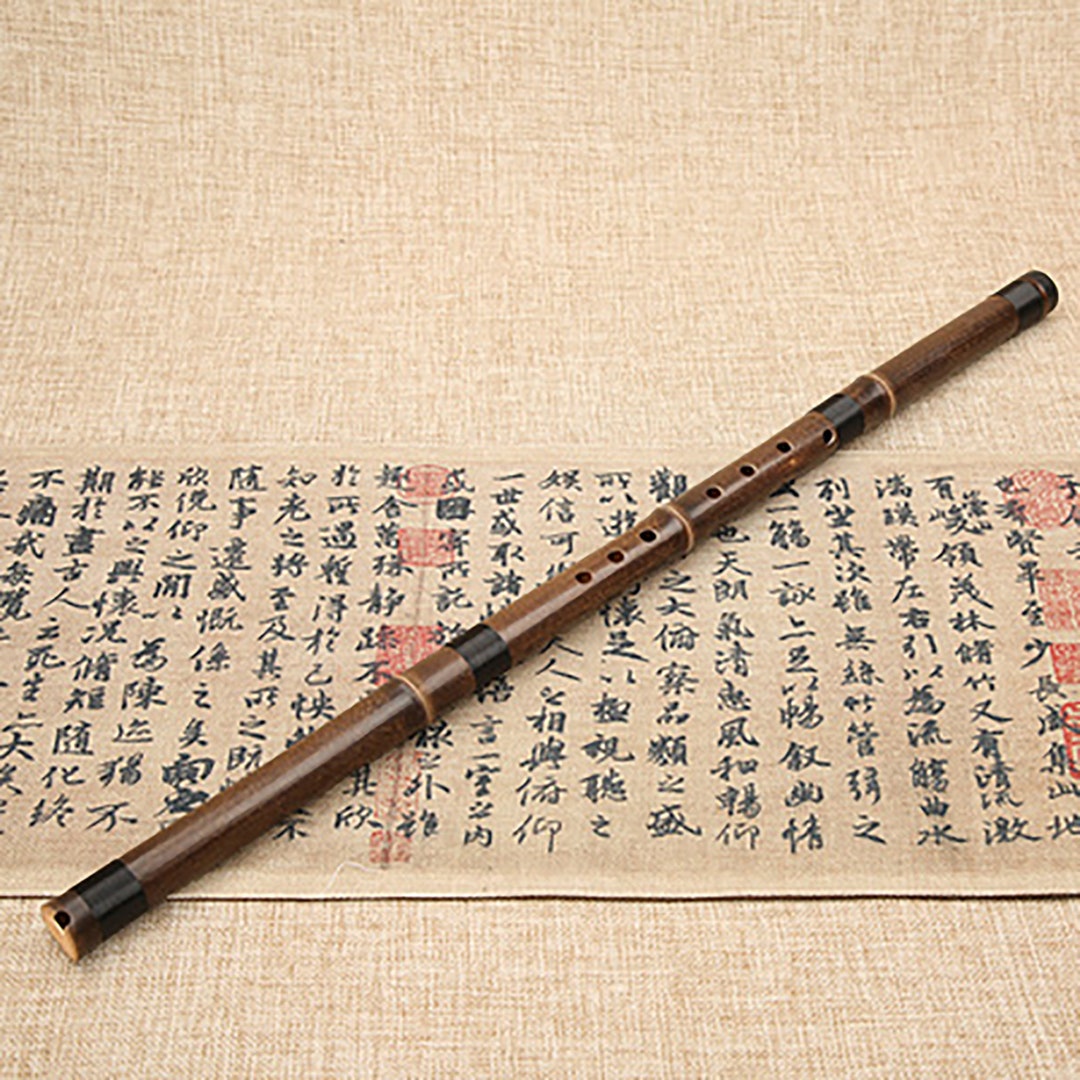 也羣賢畢至少長咸集此地
有崇山峻領茂林脩竹又有清流激
湍暎帶左右引以為流觴曲水
列坐其次雖無絲竹管弦之
一觴一詠亦足以暢叙幽情
也天朗氣清惠風和暢仰
觀之大俯察品類之盛
所以遊懷足以極視聽之
娛信可人之相與俯仰
一世或取諸悟言一室之內
或因寄所託之外雖
趣舍萬殊靜躁不其欣
於所遇蹔得於己怏
知老之將至及其所之既
隨事遷感慨係之矣向
欣俛仰之閒以為陳迹猶不
能不以之興懷況脩短隨化終
期於盡古人云死生亦大矣
不痛哉每攬